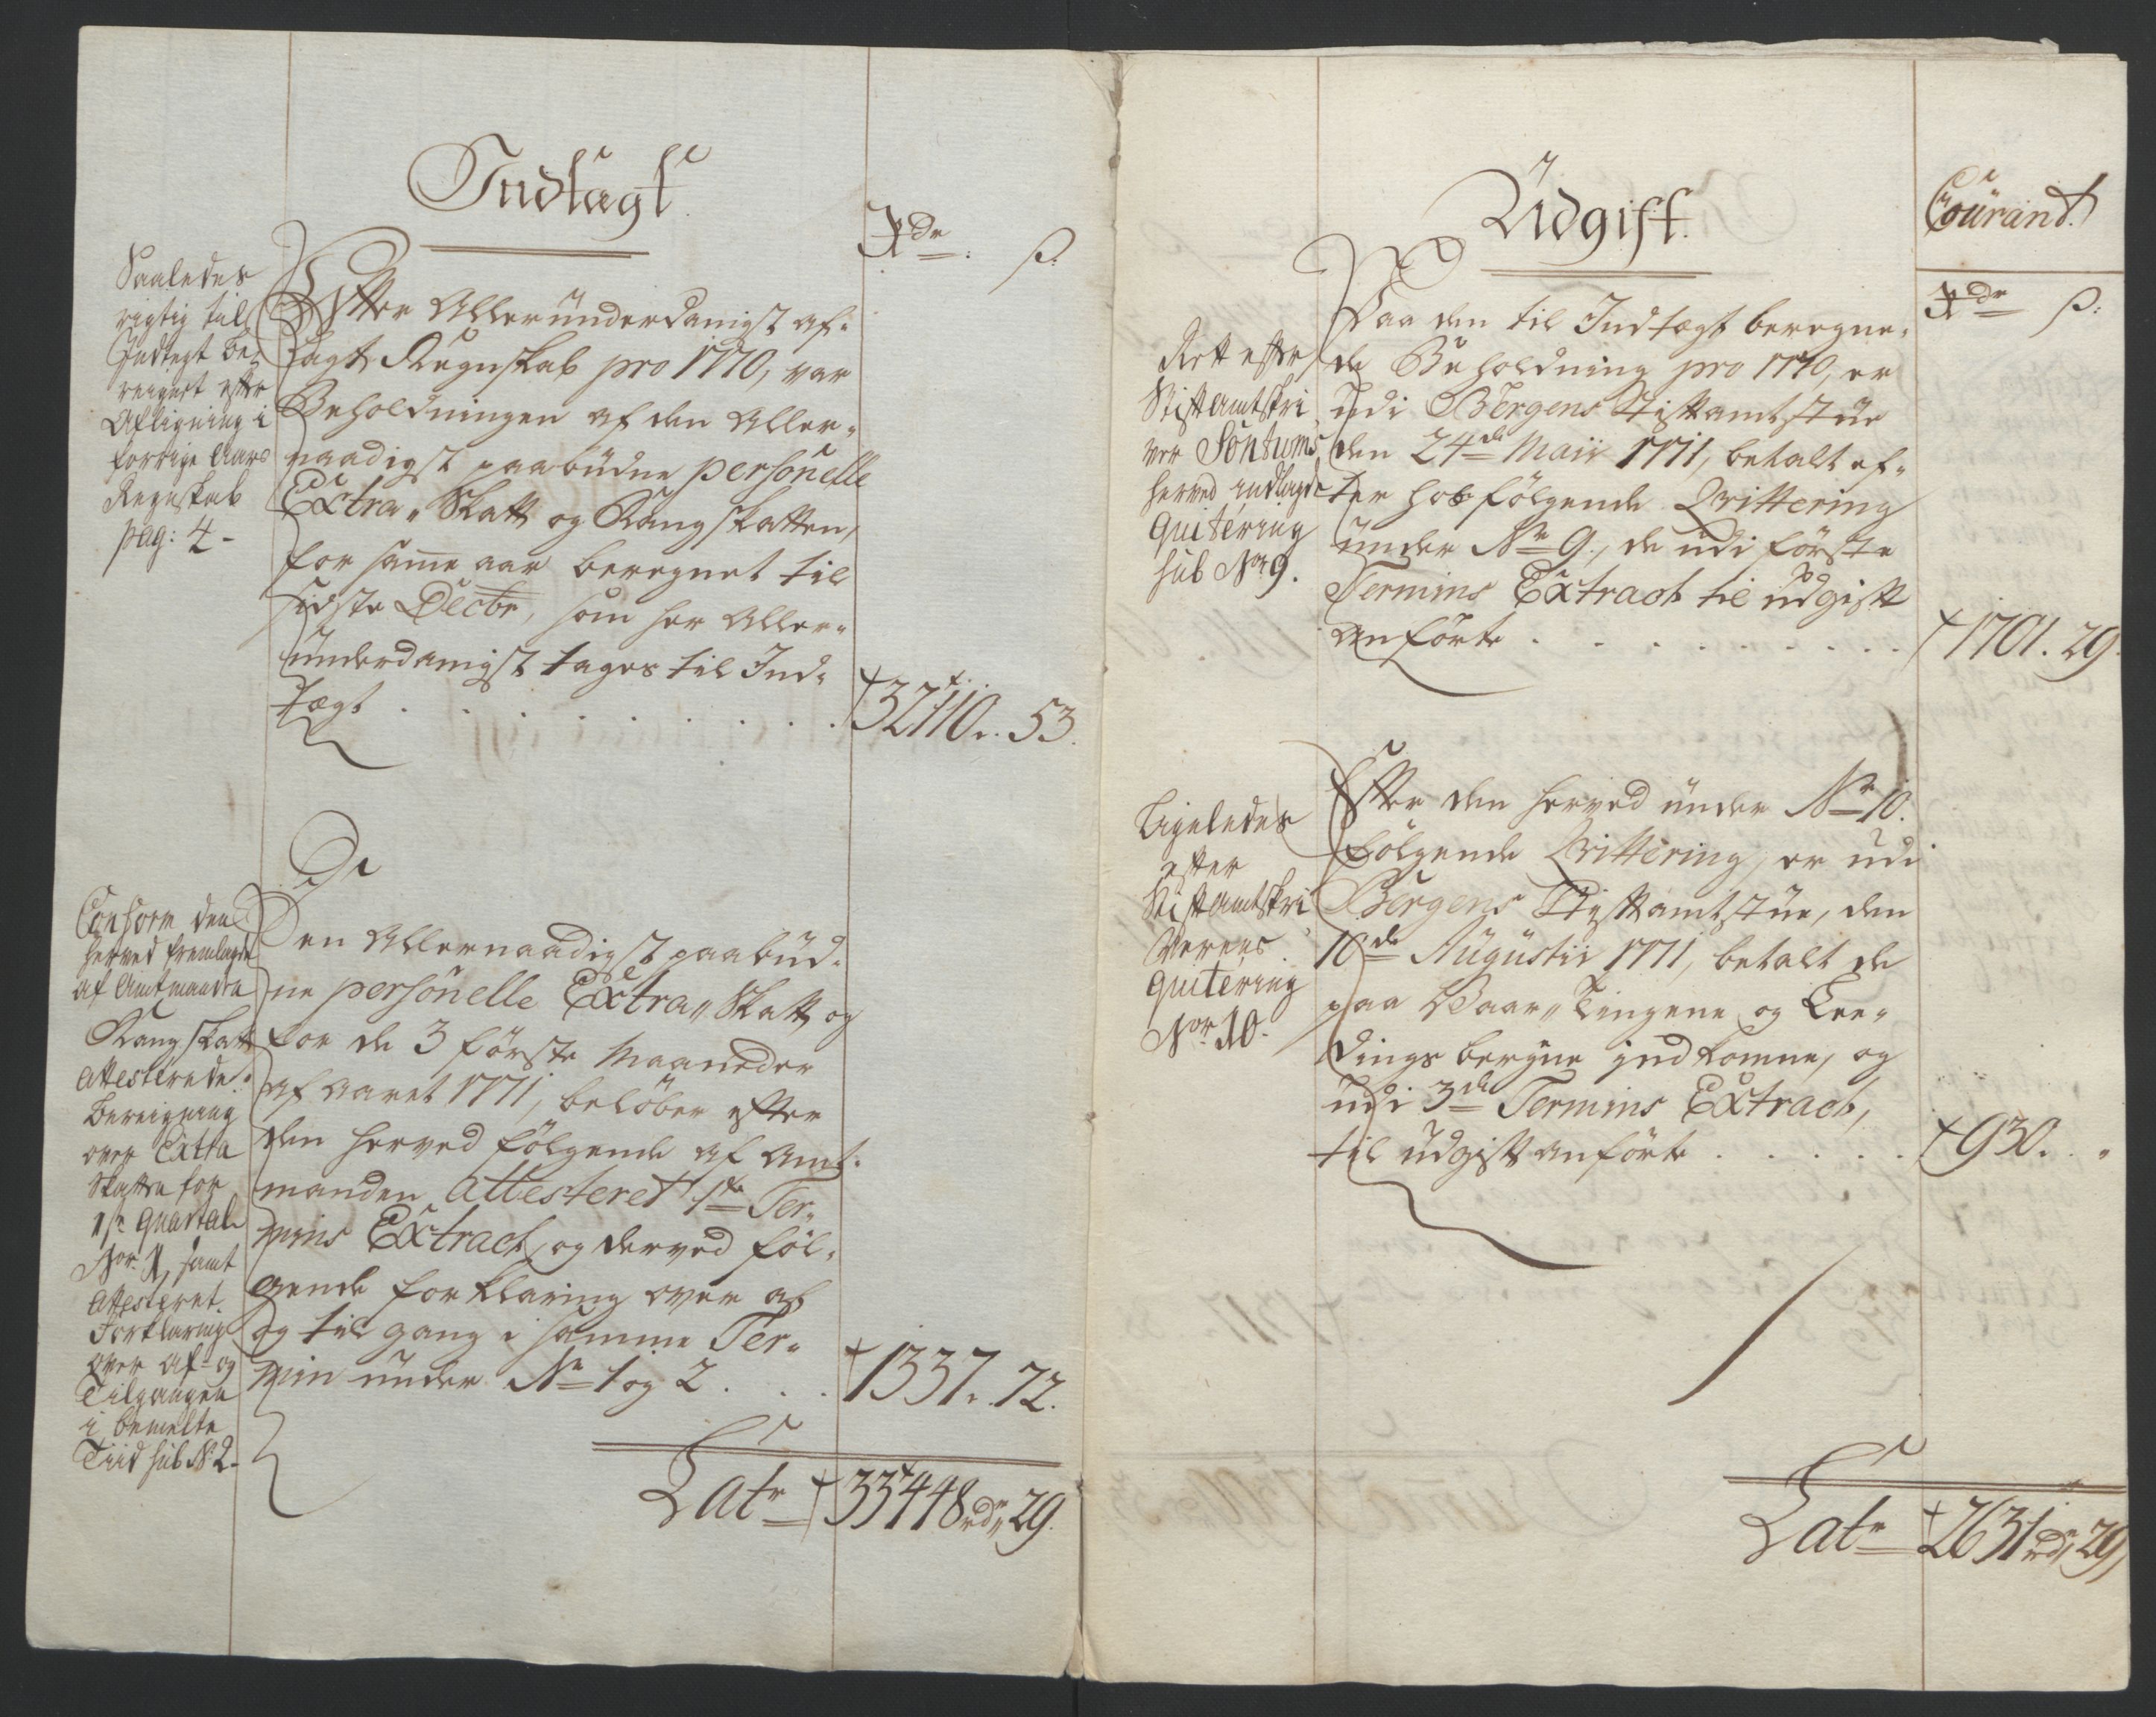 Indtægt
Rdr ß:
Saaledes
rigtig til
Indtegt be-
reignet efter
Afligning i
forrige Aars
Regnskab
pag: 4-
Efter Alleründerdanigst af-
lagt Regnskab pro 1770, var
Beholdningen af den Aller-
naadigst paabüdne personelle
Extra„ Skatt og Rangskatten,
for samme aar beregnet til
sidste Decbr, som her Aller-
ünderdanigst tages til Ind-
tægt . . . . . . . . 32110. 53.
Conform den
herved fremlagde
af Amtmanden
Rangskatt
attesterede
Bereigning
over Extra
Skatten for
1st Quartal
Nor. 1, samt
Attesteret
Forklaring
over Af- og
Tilgangen
i bemelte
Tiid sub No 2.
Den Allernaadigst paabüd-
ne personelle Extra„ Skatt og
for de 3 förste Maaneder
af Aaret 1771, belöber efter
den herved fölgende af Amt-
manden Attesteret 1ste Ter-
mins Extract, og derved föl-
gende forklaring over af
og til gang i samme Ter-
min ünder No 1 og 2 . . . 1337. 72.
Latr 33448 rdr 29.
Üdgift.
Courant.
Rdr ß:
Rett efter
Stiftamtskri
ver Söntums
herved indlagde
Quitering
sub Nor 9.
Paa den til Indtægt beregne-
de Beholdning pro 1770, er
üdi Bergens Stiftamtstüe
den 24de Maii 1771, betalt ef-
ter hosfölgende Qvittering
ünder No 9, de üdi förste
Termins Extract til üdgift
anförte . . . . . . . . 1701. 29.
Ligeledes
efter
Stiftamtskri
verens
Quitering
Nor 10.
Efter den herved ünder No 10.
fölgende Qvittering, er üdi
Bergens Stiftamtstüe, den
10de Augüstii 1771, betalt de
paa Vaar„ Tingene og Lee-
dings bergene indkomne, og
üdi 3de Termins Extract,
til üdgift anförte . . . . . 930. „
Latr 2631 rdr 29